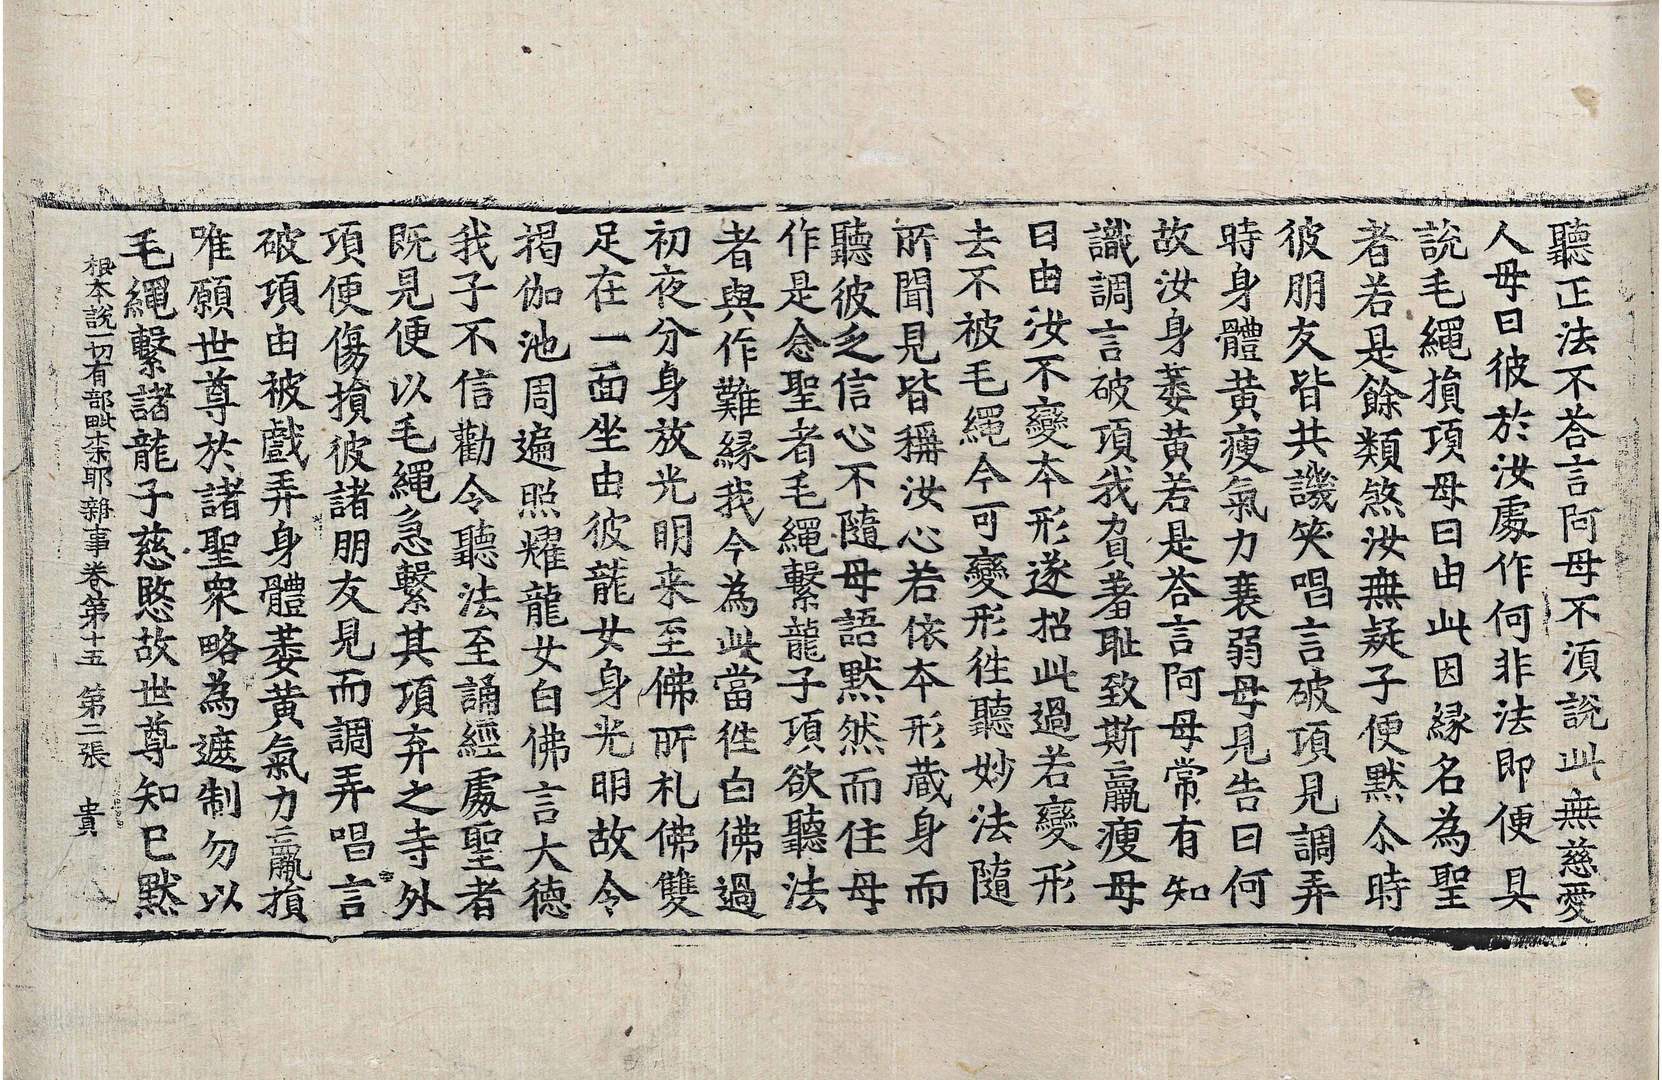 聽正法不荅言阿母不湏說此無慈愛
人母曰彼於汝處作何非法即便具
說毛繩損項母曰由此因縁名為聖
者若是餘類煞汝無疑子便默尒時
彼朋友皆共譏笑唱言破項見調弄
時身體黃瘦氣力衰弱母見告曰何
故汝身萎黃若是荅言阿母常有知
識調言破項我負羞耻致斯羸瘦母
曰由汝不變本形遂招此過若變形
去不被毛繩今可變形徃聽妙法隨
所聞見皆稱汝心若依本形蔵身而
聽彼乏信心不隨母語默然而住母
作是念聖者毛繩繫龍子項欲聽法
者與作難縁我今為此當徃白佛過
初夜分身放光明来至佛所礼佛雙
足在一面坐由彼龍女身光明故令
揭伽池周遍照耀龍女白佛言大德
我子不信勸令聽法至誦經處聖者
既見便以毛繩急繫其項弃之寺外
項便傷損彼諸朋友見而調弄唱言
破項由被戲弄身體萎黃氣力羸損
唯願世尊於諸聖衆略為遮制勿以
毛繩繫諸龍子慈愍故世尊知已默
根本說一切有部毗柰耶雜事卷第十五　第二張　貴